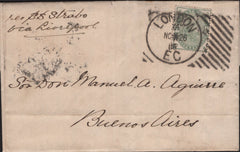 per S.S. Strabo
via Liverpool
LONDON
E.C
Sor Don Manuel A. Aguirre
Buenos Aires